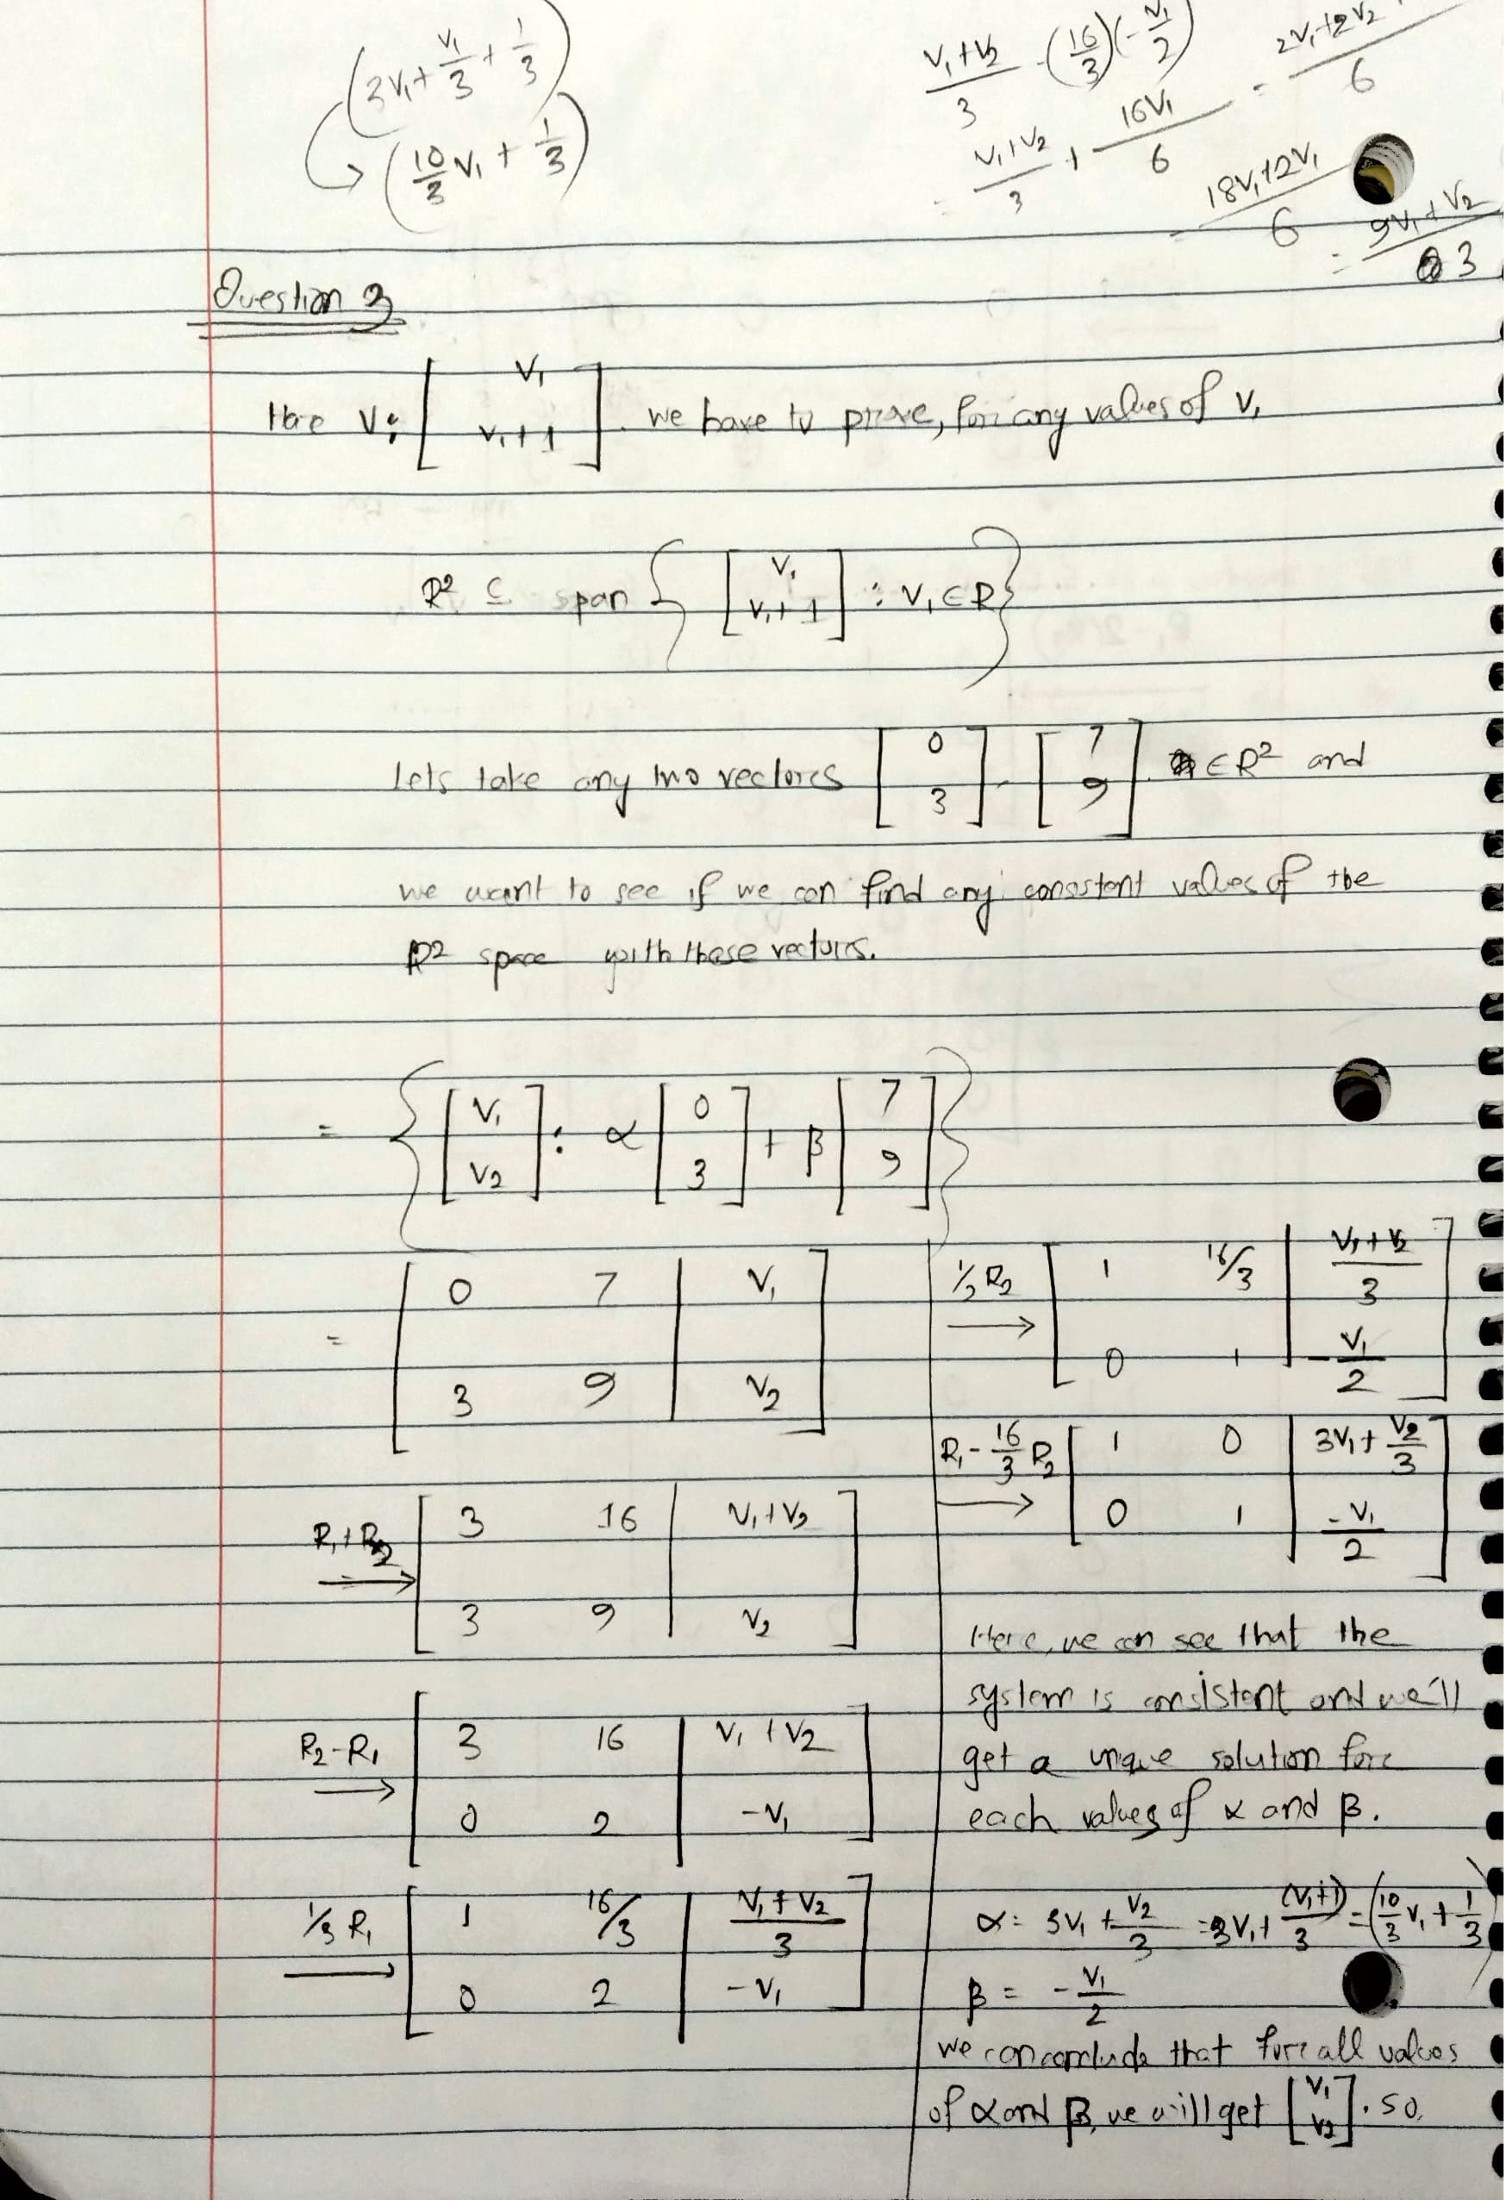 (3v₁ + v₁/3 + 1/3)
↳ (10/3 v₁ + 1/3)
(v₁+v₂)/3 - (16/3)(-v₁/2)
= (v₁+v₂)/3 + 16v₁/6 = (2v₁+2v₂
/6
= (18v₁+2v₁)/6 = (9v₁+v₂)/3
Question 3
Here v: [v₁; v₁+1]. we have to prove, for any values of v₁
R² ⊆ span { [v₁; v₁+1] : v₁ ∈ R }
Lets take any two vectores [0; 3] - [7; 9]. ∈ R² and
we want to see if we can find any consstent values of the
R² space with these vectors.
= { [v₁; v₂] : α [0; 3] + β [7; 9] }
= [0 7 | v₁; 3 9 | v₂]
R₁+R₂ → [3 16 | v₁+v₂; 3 9 | v₂]
R₂-R₁ → [3 16 | v₁+v₂; 0 2 | -v₁]
1/3 R₁ → [1 16/3 | (v₁+v₂)/3; 0 2 | -v₁]
1/2 R₂ → [1 16/3 | (v₁+v₂)/3; 0 1 | -v₁/2]
R₁ - 16/3 R₂ → [1 0 | 3v₁ + v₂/3; 0 1 | -v₁/2]
Here, we can see that the
system is consistent and we'll
get a unique solution fore
each values of α and β.
α = 3v₁ + v₂/3 = 3v₁ + (v₁+1)/3 = (10/3 v₁ + 1/3)
β = -v₁/2
we can conclude that fore all values
of α and β, we will get [v₁; v₂]. so,